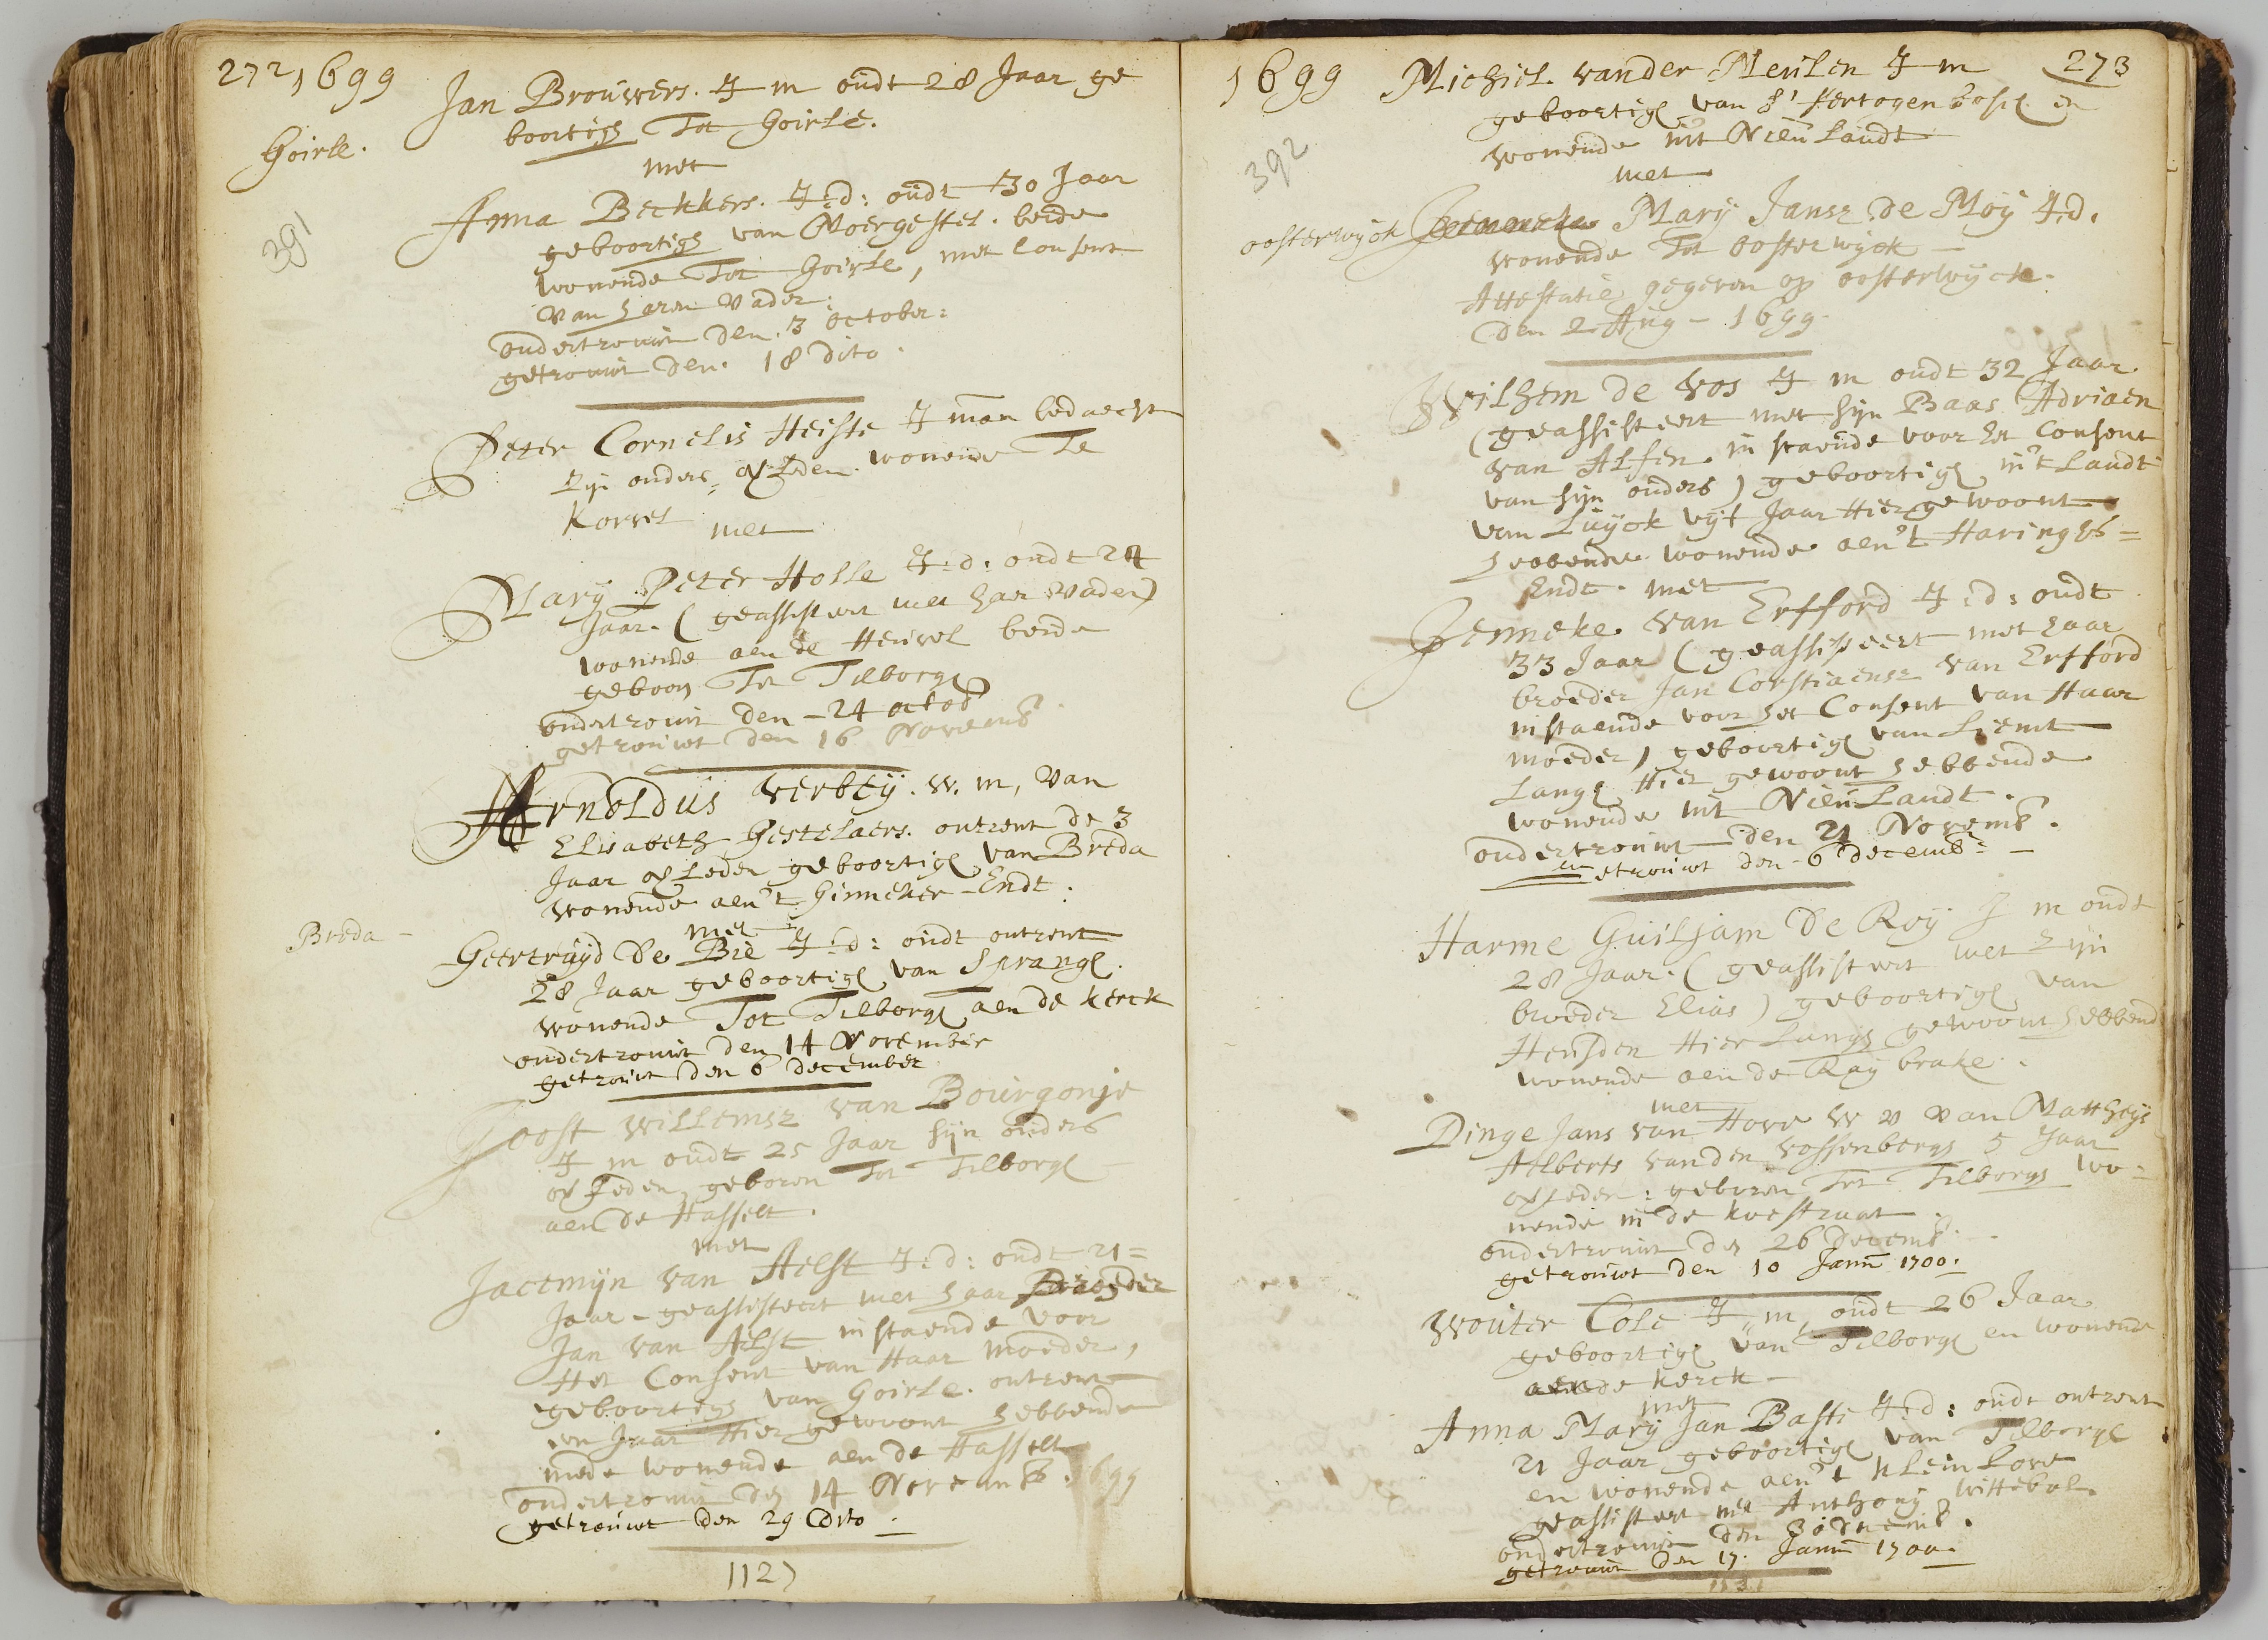 272 1699
Goirle.
391
Jan Brouwers. J m oudt 28 Jaar ge
boortigh Tot Goirle.
met
Anna Beckkers. J:d: oudt 30 Jaar
geboortigh van Moergestel. beide
wonende Tot Goirle, met Consent
van haren Vader:
ondertrouwt den. 3 October:
getrouwt den. 18 dito.
Peter Cornelis Heiste J man bedaeght
zijn ouders overleden wonende Te
Korvel
met
Mary Peter Holle J:d: oudt 24
Jaar. (geassisteert met haar Vader)
wonende aen de Heuvel beide
geboren Tot Tilborgh
ondertrouwt den - 24 octob
getrouwt den 16 Novemb
Arnoldus Verbeij. W. m, van
Elisabeth Gestelaers. ontrent de 3
Jaar overleden geboortigh van Breda
wonende aen't Ginneker-Endt.
met
Breda -
Geertruijd de Bie J:d: oudt ontrent
28 Jaar geboortigh van Sprangh.
wonende Tot Tilborgh aen de kerck
ondertrouwt den 14 November
getrouwt den 6 December
Joost Willemsz van Bourgonje
J m oudt 25 Jaar sijn ouders
overleden geboren Tot Tilborgh
aen de Hasselt.
met
Jacemijn van Aelst J:d: oudt 21=
Jaar - geassisteert met haar broeder
Jan van Aelst instaende voor
Het Consent van Haar moeder,
geboortigh van Goirle. ontrent
een Jaar Hier gewoont hebbende
mede wonende aen de Hasselt
ondertrouwt den 14 Novemb. 1699
getrouwt den 29 dito.
112)
1699
273
392
Michiel vander Meulen J m
geboortigh van s'Hertogenbosch en
wonende int Nieulandt
met
oosterwyck
Mary Jansz de Moy J.d.
wonende Tot Oosterwyck
Attestatie gegeven op oosterwyck.
den 2 Aug - 1699.
Wilhem de Vos J m oudt 32 Jaar.
(geassisteert met sijn Baas Adriaen
van Alfen. instaende voor het Consent
van sijn ouders) geboortigh in't Landt
van Luyck vyf Jaar Hier gewoont
hebbende wonende aen't Haringhs=
Endt. met
Jenneke van Erfford J:d: oudt
33 Jaar (geassisteert met haar
broeder Jan Corstiaensz van Erfford
instaende voor het Consent van Haar
moeder) geboortigh van Liemt
Langh Hier gewoont hebbende
wonende int Nieulandt.
ondertrouwt den 21 Novemb.
getrouwt den 6 Decemb:
Harme Guiljam de Roy J m oudt
28 Jaar. (geassisteert met zijn
broeder Elias) geboortigh van
Heusden Hier Langh gewoont hebbend
wonende aen de Ray brake.
met
Dinge Jans van Hove W v van Matthijs
Aelberts vanden Vossenbergh 5 Jaar
overleden: geboren Tot Tilborgh wo=
nende in de koestraat
ondertrouwt den 26 Decemb.
getrouwt den 10 Janu 1700.
Wouter Cole J, m, oudt 26 Jaar
geboortigh van Tilborgh en wonende
aen de kerck -
met
Anna Mary Jan Basti J:d: oudt ontrent
21 Jaar geboortigh van Tilborgh
en wonende aen't klein Love
geassisteert met Anthony Wittebol.
ondertrouwt den 30 Decemb.
getrouwt den 17. Janu 1700.